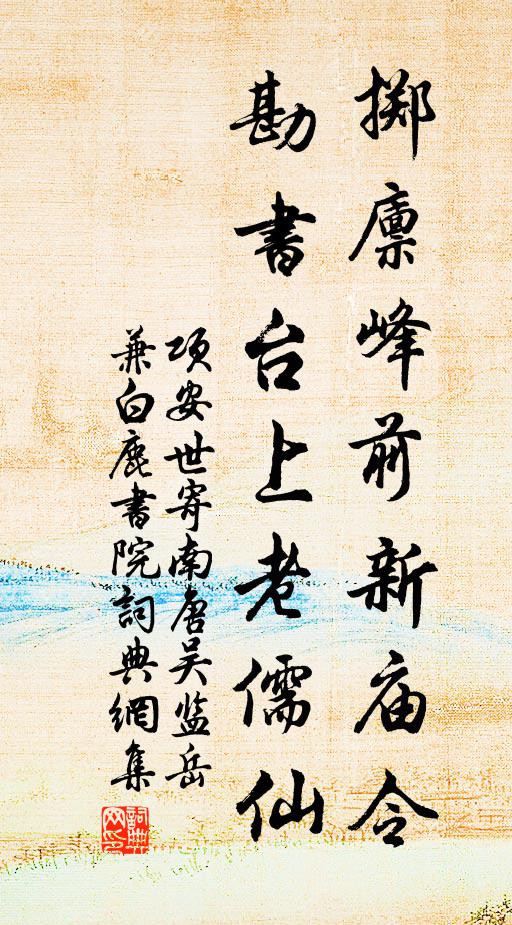 掷廪峰前新庙令
勘书台上老儒仙
项安世寄南唐吴监岳
兼白鹿书院詞典網集
詞典网印